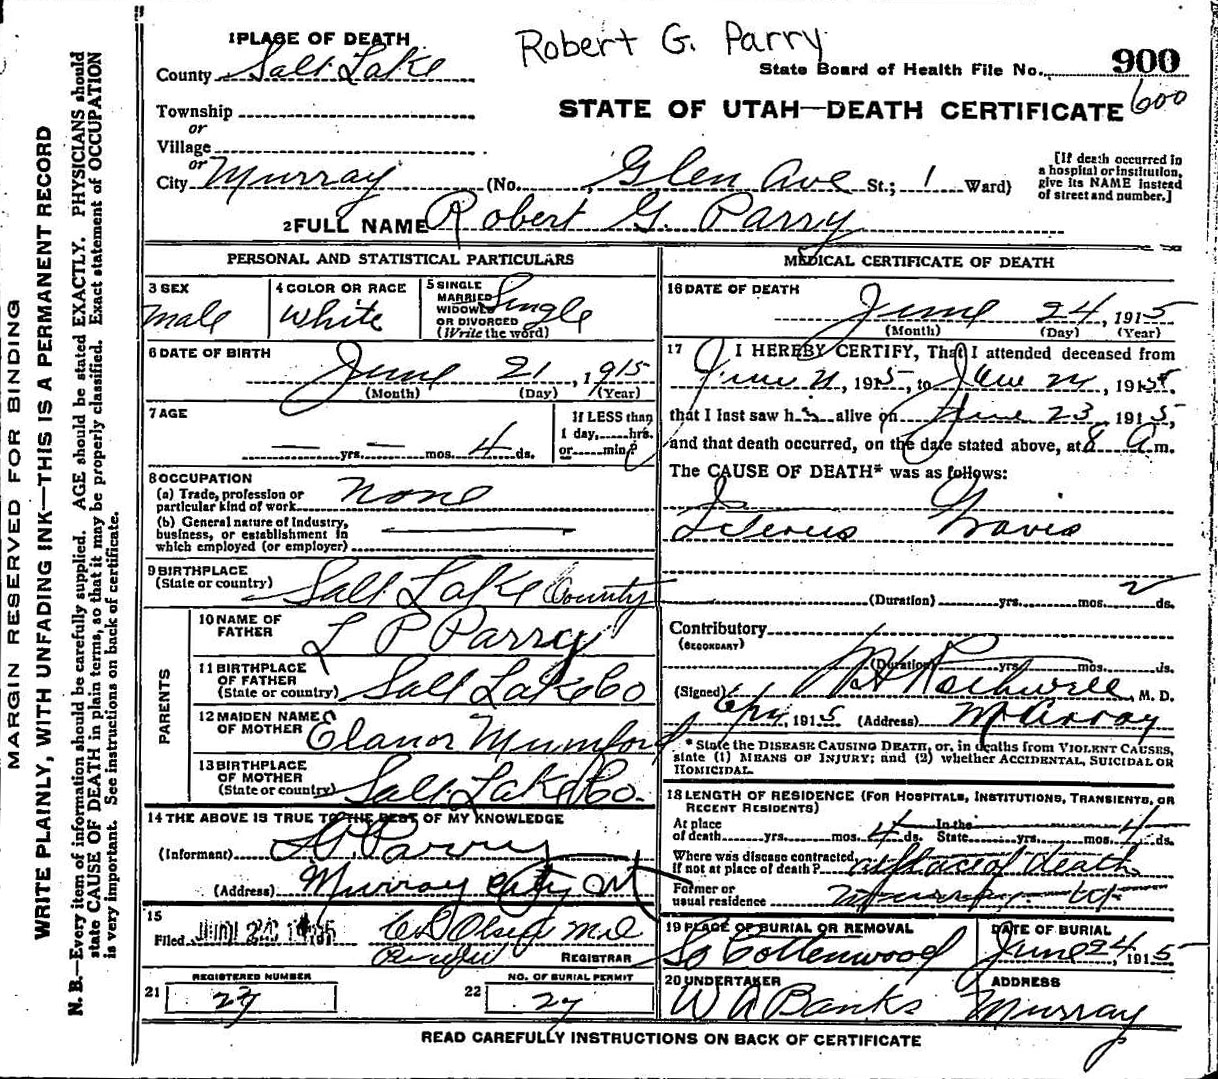 Robert G. Parry
1 PLACE OF DEATH
County Salt Lake
State Board of Health File No. 900
600
STATE OF UTAH—DEATH CERTIFICATE
Township
or
Village
or
City Murray (No. , Glen Ave St.; 1 Ward)
[If death occurred in a hospital or institution, give its NAME instead of street and number.]
2 FULL NAME Robert G. Parry
MARGIN RESERVED FOR BINDING
WRITE PLAINLY, WITH UNFADING INK—THIS IS A PERMANENT RECORD
N. B.—Every item of information should be carefully supplied. AGE should be stated EXACTLY. PHYSICIANS should
state CAUSE OF DEATH in plain terms, so that it may be properly classified. Exact statement of OCCUPATION
is very important. See instructions on back of certificate.
PERSONAL AND STATISTICAL PARTICULARS
3 SEX
Male
4 COLOR OR RACE
White
5 SINGLE
MARRIED
WIDOWED
OR DIVORCED
(Write the word)
Single
6 DATE OF BIRTH
June 21, 1915
(Month) (Day) (Year)
7 AGE
— yrs. — mos. 4 ds.
If LESS than
1 day, hrs.
or min.?
8 OCCUPATION
(a) Trade, profession or
particular kind of work None
(b) General nature of Industry,
business, or establishment in
which employed (or employer)
9 BIRTHPLACE
(State or country) Salt Lake County
PARENTS
10 NAME OF
FATHER L P Parry
11 BIRTHPLACE
OF FATHER
(State or country) Salt Lake Co
12 MAIDEN NAME
OF MOTHER Elanor Mumford
13 BIRTHPLACE
OF MOTHER
(State or country) Salt Lake Co.
14 THE ABOVE IS TRUE TO THE BEST OF MY KNOWLEDGE
(Informant) L P Parry
(Address) Murray City Ut
15
Filed JUN 1915 Olsen
REGISTRAR
REGISTERED NUMBER
21 27
NO. OF BURIAL PERMIT
22 27
MEDICAL CERTIFICATE OF DEATH
16 DATE OF DEATH
June 24, 1915
(Month) (Day) (Year)
17 I HEREBY CERTIFY, That I attended deceased from
June 21, 1915, to June 24, 1915
that I last saw h alive on June 23, 1915,
and that death occurred, on the date stated above, at 8 a m.
The CAUSE OF DEATH* was as follows:
Icterus Gravis
(Duration) yrs. mos. 2 ds.
Contributory
(SECONDARY)
(Duration) yrs. mos. ds.
(Signed) Rothwell, M. D.
1915 (Address) Murray
* State the DISEASE CAUSING DEATH, or, in deaths from VIOLENT CAUSES,
state (1) MEANS OF INJURY; and (2) whether ACCIDENTAL, SUICIDAL OR
HOMICIDAL.
18 LENGTH OF RESIDENCE (FOR HOSPITALS, INSTITUTIONS, TRANSIENTS, OR
RECENT RESIDENTS)
At place
of death yrs. mos. 4 ds. In the State yrs. mos. 4 ds.
Where was disease contracted,
if not at place of death? at place of death
Former or
usual residence Murray Ut
19 PLACE OF BURIAL OR REMOVAL
So Cottenwood
DATE OF BURIAL
June 24, 1915
20 UNDERTAKER
W A Banks
ADDRESS
Murray
READ CAREFULLY INSTRUCTIONS ON BACK OF CERTIFICATE